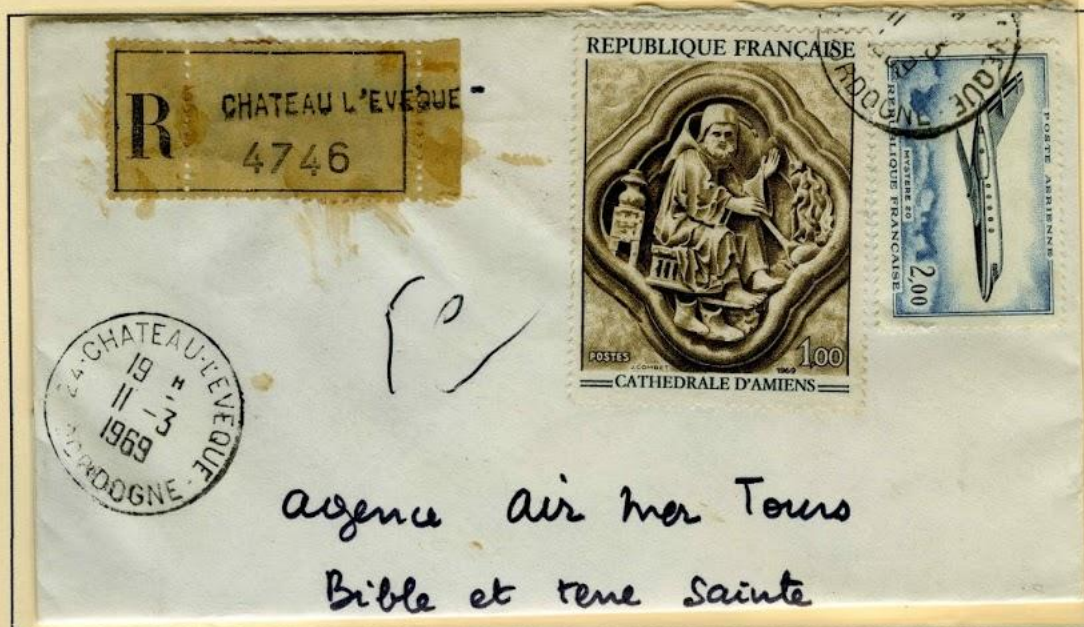 R CHATEAU L'EVEQUE -
4746
REPUBLIQUE FRANÇAISE
POSTES
1,00
J.COMBET 1969
CATHEDRALE D'AMIENS
POSTE AERIENNE
MYSTERE 20
REPUBLIQUE FRANÇAISE
2,00
EVEQUE
DORDOGNE
11 3
24-CHATEAU-L'EVEQUE
19 H
11 - 3
1969
DORDOGNE
agence air mer Tours
Bible et terre Sainte